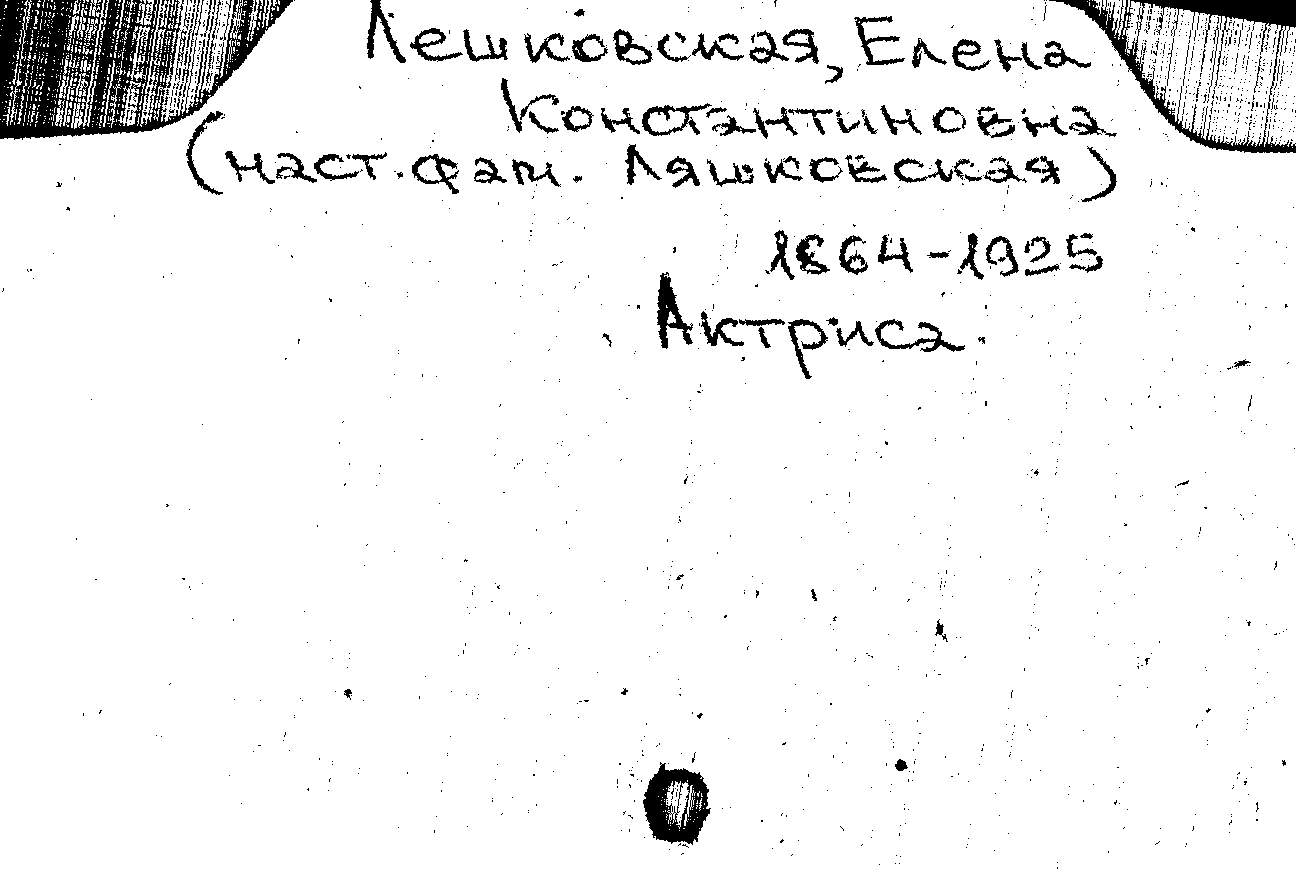 Лешковская, Елена
Константиновна
(наст. фам. Ляшковская)
1864-1925
Актриса.